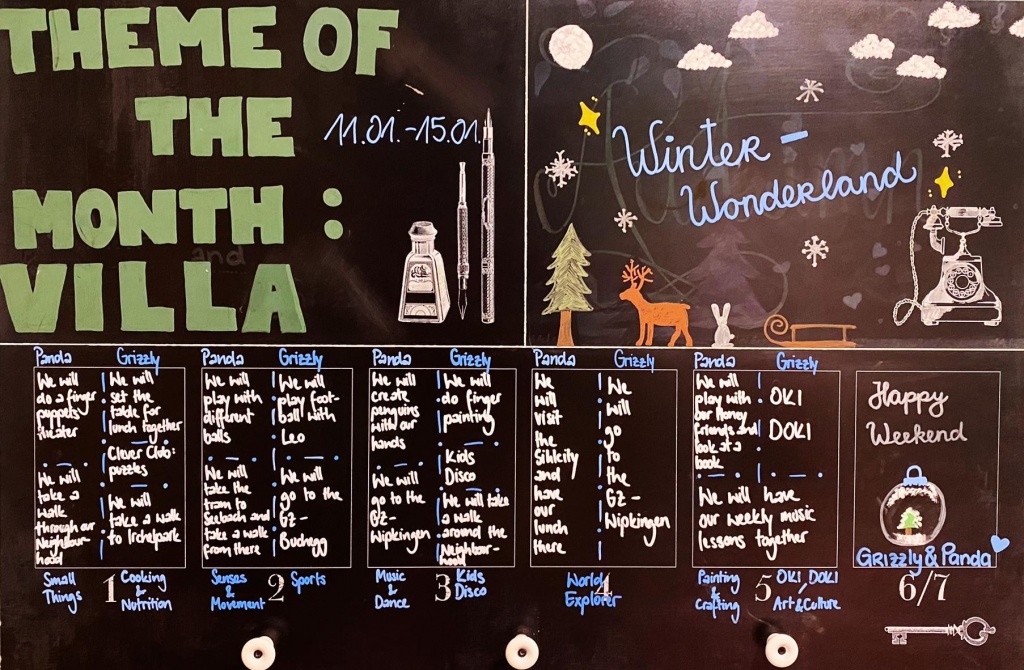 THEME OF
THE
MONTH :
VILLA
11.01.-15.01.
Winter-
Wonderland
Panda
Grizzly
We will
do a finger
puppets
theater
We will
take a
walk
through our
Neighbour-
hood
We will
set the
table for
lunch together
Clever Club:
puzzles
We will
take a walk
to Irchelpark
Small
Things
1
Cooking
&
Nutrition
Panda
Grizzly
We will
play with
different
balls
We will
take the
tram to
Seebach and
take a walk
from there
We will
play foot-
ball with
Leo
We will
go to the
GZ-
Buchegg
Senses
&
Movement
2
Sports
Panda
Grizzly
We will
create
penguins
with our
hands
We will
go to the
GZ-
Wipkingen
We will
do finger
painting
Kids
Disco
We will take
a walk
around the
Neighbour-
hood
Music
&
Dance
3
Kids
Disco
Panda
Grizzly
We
will
visit
the
Sihlcity
and
have
our
lunch
there
We
will
go
to
the
GZ-
Wipkingen
World
Explorer
4
Panda
Grizzly
We will
play with
our Honey
friends and
look at a
book
OKI
DOKI
We will have
our weekly music
lessons together
Painting
&
Crafting
5
OKI, DOKI
Art&Culture
Happy
Weekend
Grizzly & Panda
6/7